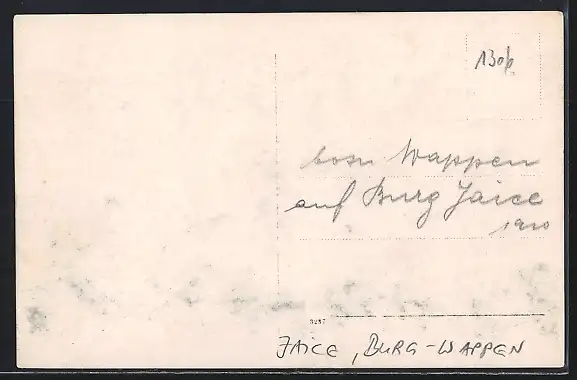 bosn Wappen
auf Burg Jaice
1910
3257
JAICE, BURG-WAPPEN